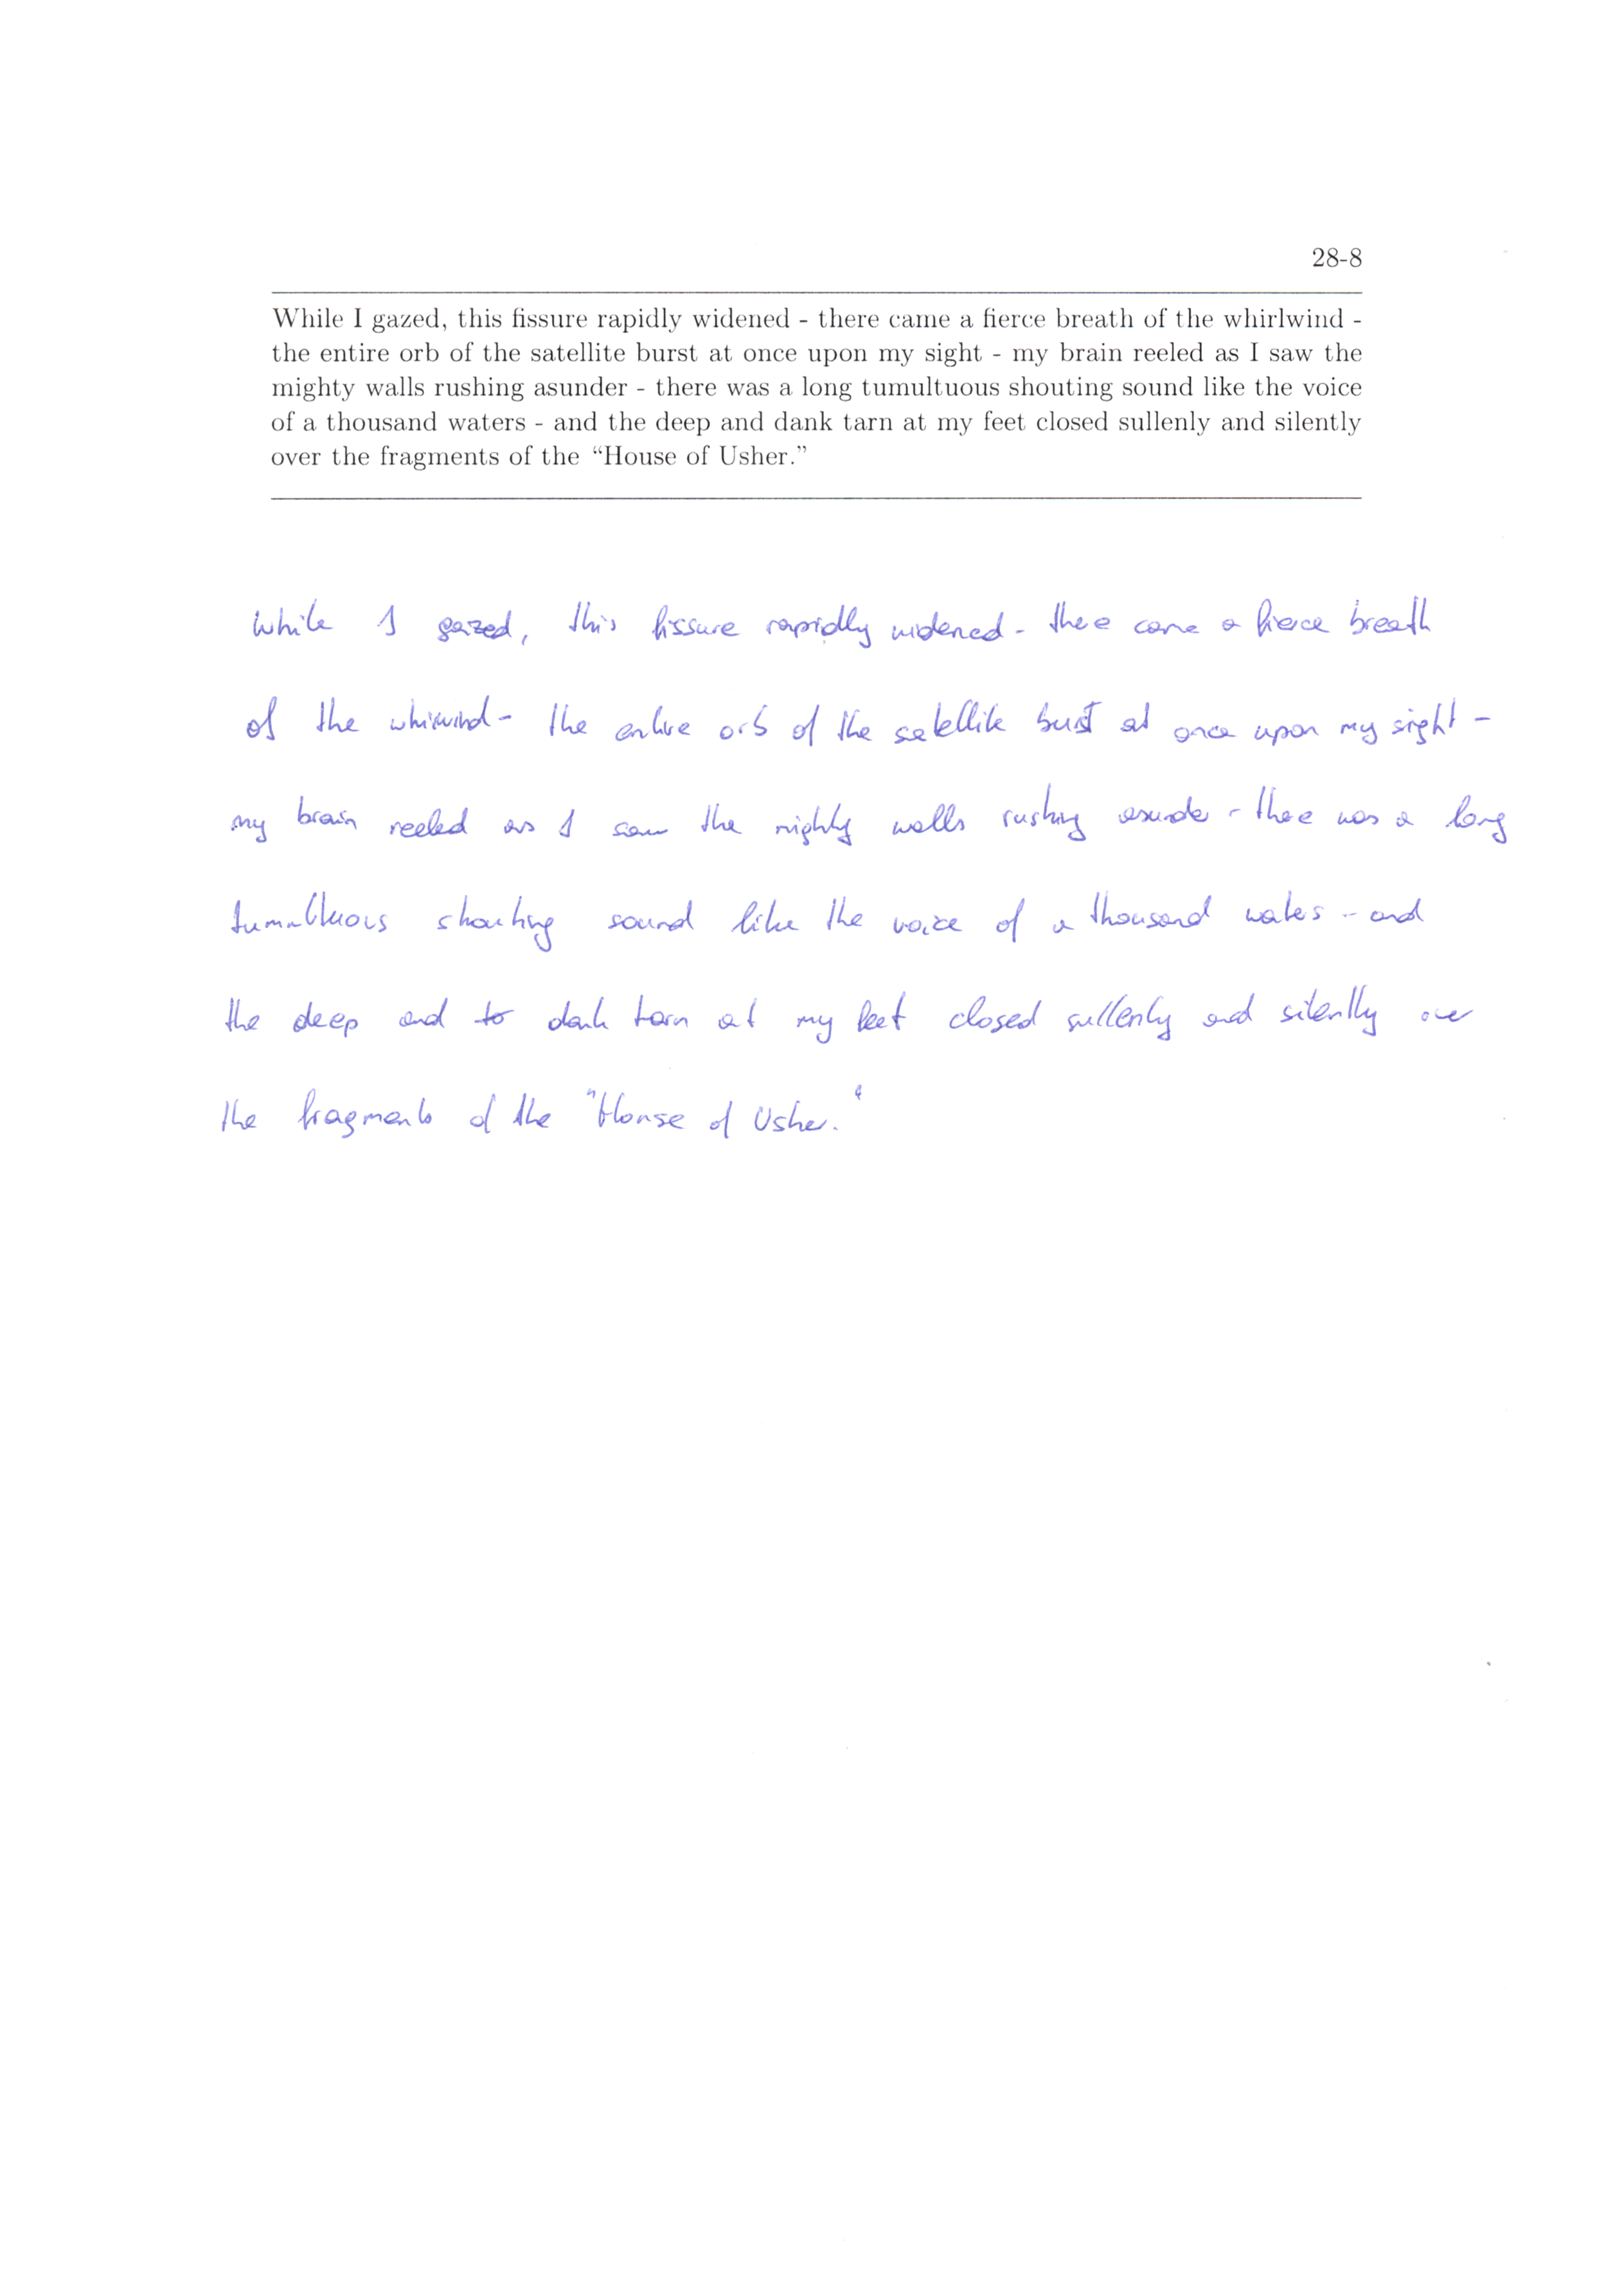 28-8
While I gazed, this fissure rapidly widened - there came a fierce breath of the whirlwind -
the entire orb of the satellite burst at once upon my sight - my brain reeled as I saw the
mighty walls rushing asunder - there was a long tumultuous shouting sound like the voice
of a thousand waters - and the deep and dank tarn at my feet closed sullenly and silently
over the fragments of the “House of Usher.”
While I gazed, this fissure rapidly widened - there came a fierce breath
of the whirwind - the entire orb of the satellite burst at once upon my sight -
my brain reeled as I saw the mighty walls rushing asunder - there was a long
tumultuous shouting sound like the voice of a thousand waters - and
the deep and to dank tarn at my feet closed sullenly and silently over
the fragments of the "House of Usher."